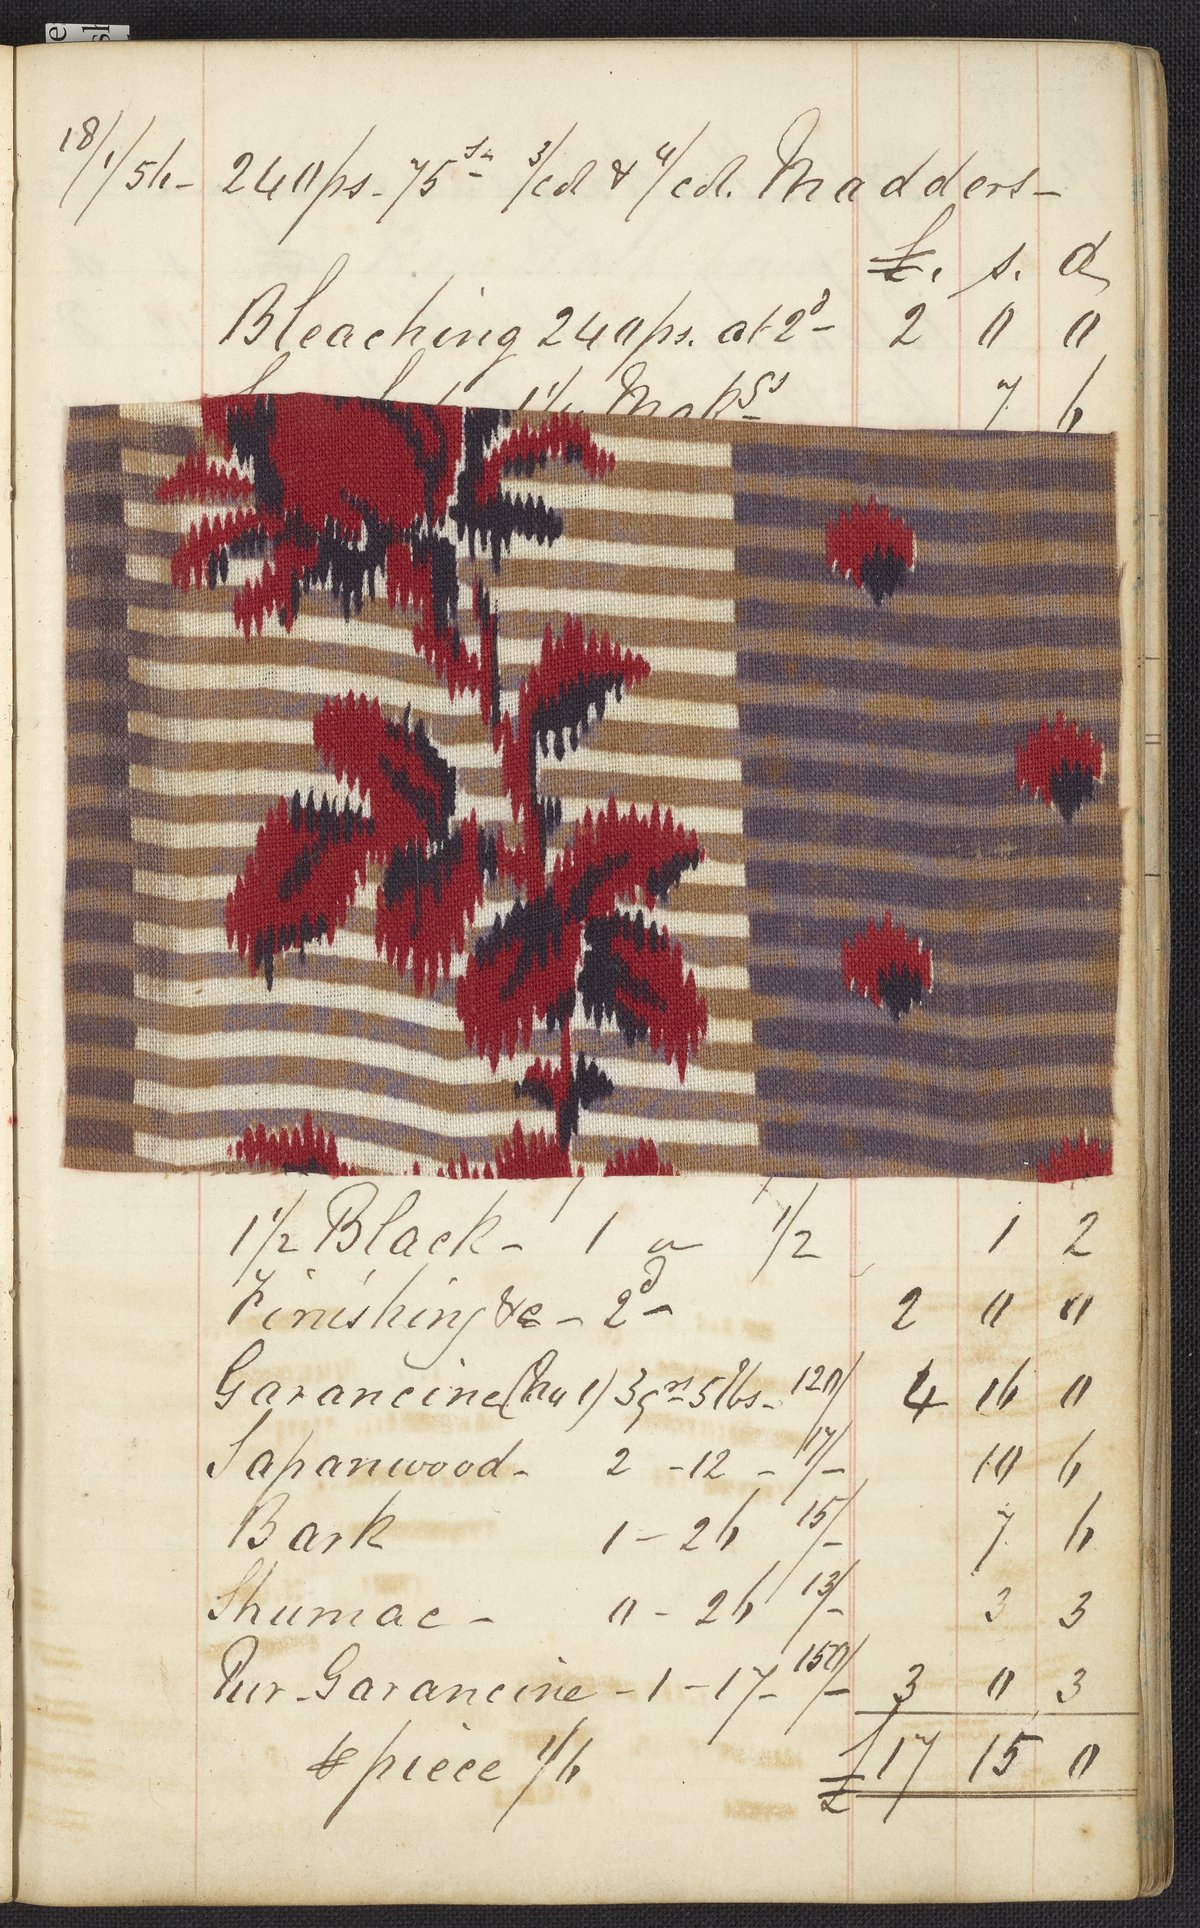 18/1/56- 240 ps. 75 sn 3/cd & 4/cd. Madders-
£. s. d
Bleaching 240 ps. at 2d- 2 0 0
7 6
1 1/2 Black- 1 1/2 1 2
Finishing &c - 2d- 2 0 0
Garancine 3 qrs 5 lbs- 120/ 4 16 0
Sapanwood- 2 -12 - 17/- 10 6
Bark 1 - 26 15/- 7 6
Shumac - 0 - 26 13/- 3 3
Pur. Garancine - 1 - 17- 150/- 3 0 3
piece 1/6 £ 17 15 0